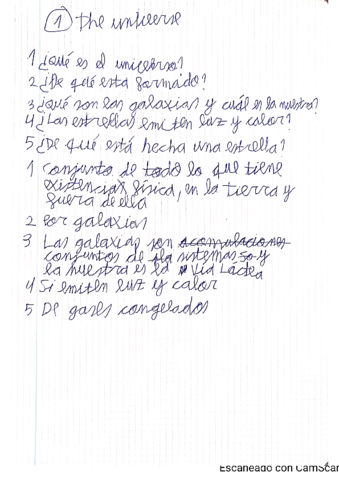 1 The universe
1 ¿qué es el universo?
2 ¿De qué está formado?
3 ¿qué son las galaxias y cuál es la nuestra?
4 ¿Las estrellas emiten luz y calor?
5 ¿De qué está hecha una estrella?
1 conjunto de todo lo que tiene
existencia física, en la tierra y
fuera de ella
2 Por galaxias
3 Las galaxias son acomulaciones
conjuntos de sistemas y
la nuestra es la Vía Láctea
4 Si emiten luz y calor
5 De gases congelados
Escaneado con CamScan